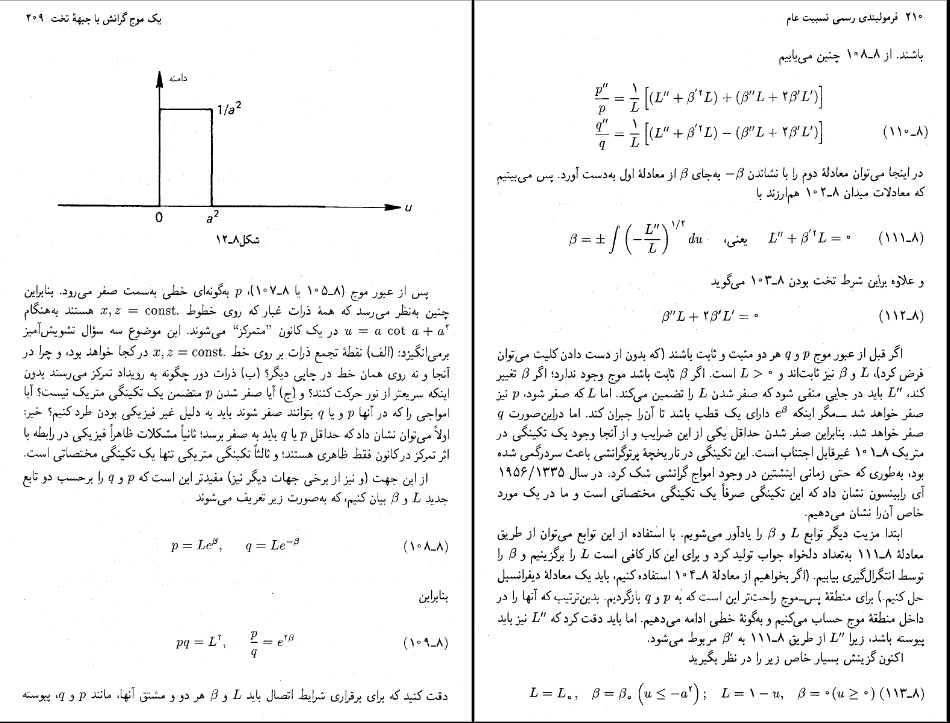 یک موج گرانش با جبههٔ تخت ۲۰۹
دامنه
1/a²
u
0
a²
شکل۸ـ۱۲
پس از عبور موج (۸ـ۱۰۵ یا ۸ـ۱۰۷)، p به‌گونه‌ای خطی به‌سمت صفر می‌رود. بنابراین
چنین به‌نظر می‌رسد که همهٔ ذرات غبار که روی خطوط x, z = const. هستند به‌هنگام
u = a cot a + a² در یک کانون ”متمرکز“ می‌شوند. این موضوع سه سؤال تشویش‌آمیز
برمی‌انگیزد: (الف) نقطهٔ تجمع ذرات بر روی خط x, z = const. در کجا خواهد بود، و چرا در
آنجا و نه روی همان خط در جایی دیگر؟ (ب) ذرات دور چگونه به رویداد تمرکز می‌رسند بدون
اینکه سریعتر از نور حرکت کنند؟ و (ج) آیا صفر شدن p متضمن یک تکینگی متریک نیست؟ آیا
امواجی را که در آنها p و یا q بتوانند صفر شوند باید به دلیل غیر فیزیکی بودن طرد کنیم؟ خیر:
اولاً می‌توان نشان داد که حداقل p یا q باید به صفر برسد؛ ثانیاً مشکلات ظاهراً فیزیکی در رابطه با
اثر تمرکز در کانون فقط ظاهری هستند؛ و ثالثاً تکینگی متریکی تنها یک تکینگی مختصاتی است.
از این جهت (و نیز از برخی جهات دیگر نیز) مفیدتر این است که p و q را برحسب دو تابع
جدید L و β بیان کنیم، که به‌صورت زیر تعریف می‌شوند
p = Leᵝ, q = Le⁻ᵝ (۸ـ۱۰۸)
بنابراین
pq = L², p/q = e²ᵝ (۸ـ۱۰۹)
دقت کنید که برای برقراری شرایط اتصال باید L و β هر دو و مشتق آنها، مانند p و q، پیوسته
۲۱۰ فرمولبندی رسمی نسبیت عام
باشند. از ۸ـ۱۰۸ چنین می‌یابیم
p″/p = ۱/L [(L″ + β′²L) + (β″L + ۲β′L′)]
q″/q = ۱/L [(L″ + β′²L) − (β″L + ۲β′L′)] (۸ـ۱۱۰)
در اینجا می‌توان معادلهٔ دوم را با نشاندن β− به‌جای β از معادلهٔ اول به‌دست آورد. پس می‌بینیم
که معادلات میدان ۸ـ۱۰۲ هم‌ارزند با
β = ± ∫ (−L″/L)^۱/۲ du یعنی، L″ + β′²L = ۰ (۸ـ۱۱۱)
و علاوه براین شرط تخت بودن ۸ـ۱۰۳ می‌گوید
β″L + ۲β′L′ = ۰ (۸ـ۱۱۲)
اگر قبل از عبور موج p و q هر دو مثبت و ثابت باشند (که بدون از دست دادن کلیت می‌توان
فرض کرد)، L و β نیز ثابت‌اند و L > ۰ است. اگر β ثابت باشد موج وجود ندارد؛ اگر β تغییر
کند، L″ باید در جایی منفی شود که صفر شدن L را تضمین می‌کند. اما L که صفر شود، p نیز
صفر خواهد شد ــمگر اینکه eᵝ دارای یک قطب باشد تا آن‌را جبران کند. اما دراین‌صورت q
صفر خواهد شد. بنابراین صفر شدن حداقل یکی از این ضرایب و از آنجا وجود یک تکینگی در
متریک ۸ـ۱۰۱ غیرقابل اجتناب است. این تکینگی در تاریخچهٔ پرتوگرانشی باعث سردرگمی شده
بود، به‌طوری که حتی زمانی اینشتین در وجود امواج گرانشی شک کرد. در سال ۱۹۵۶/۱۳۳۵
آی رابینسون نشان داد که این تکینگی صرفاً یک تکینگی مختصاتی است و ما در یک مورد
خاص آن‌را نشان می‌دهیم.
ابتدا مزیت دیگر توابع L و β را یادآور می‌شویم. با استفاده از این توابع می‌توان از طریق
معادلهٔ ۸ـ۱۱۱ به‌تعداد دلخواه جواب تولید کرد و برای این کار کافی است L را برگزینیم و β را
توسط انتگرال‌گیری بیابیم. (اگر بخواهیم از معادلهٔ ۸ـ۱۰۴ استفاده کنیم، باید یک معادلهٔ دیفرانسیل
حل کنیم.) برای منطقهٔ پس‌ـ‌موج راحت‌تر این است که به p و q بازگردیم. بدین‌ترتیب که آنها را در
داخل منطقهٔ موج حساب می‌کنیم و به‌گونهٔ خطی ادامه می‌دهیم. اما باید دقت کرد که L″ نیز باید
پیوسته باشد، زیرا L″ از طریق ۸ـ۱۱۱ به β′ مربوط می‌شود.
اکنون گزینش بسیار خاص زیر را در نظر بگیرید
L = L₀, β = β₀ (u ≤ −a²); L = ۱ − u, β = ۰ (u ≥ ۰) (۸ـ۱۱۳)